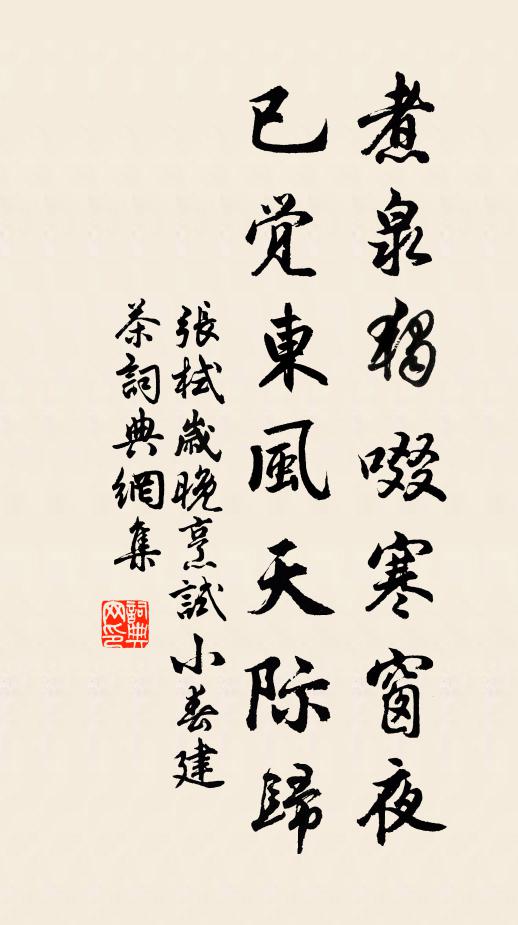 煮泉獨啜寒窗夜
已覺東風天际歸
張栻歲晚烹試小春建
茶詞典網集
詞典网印